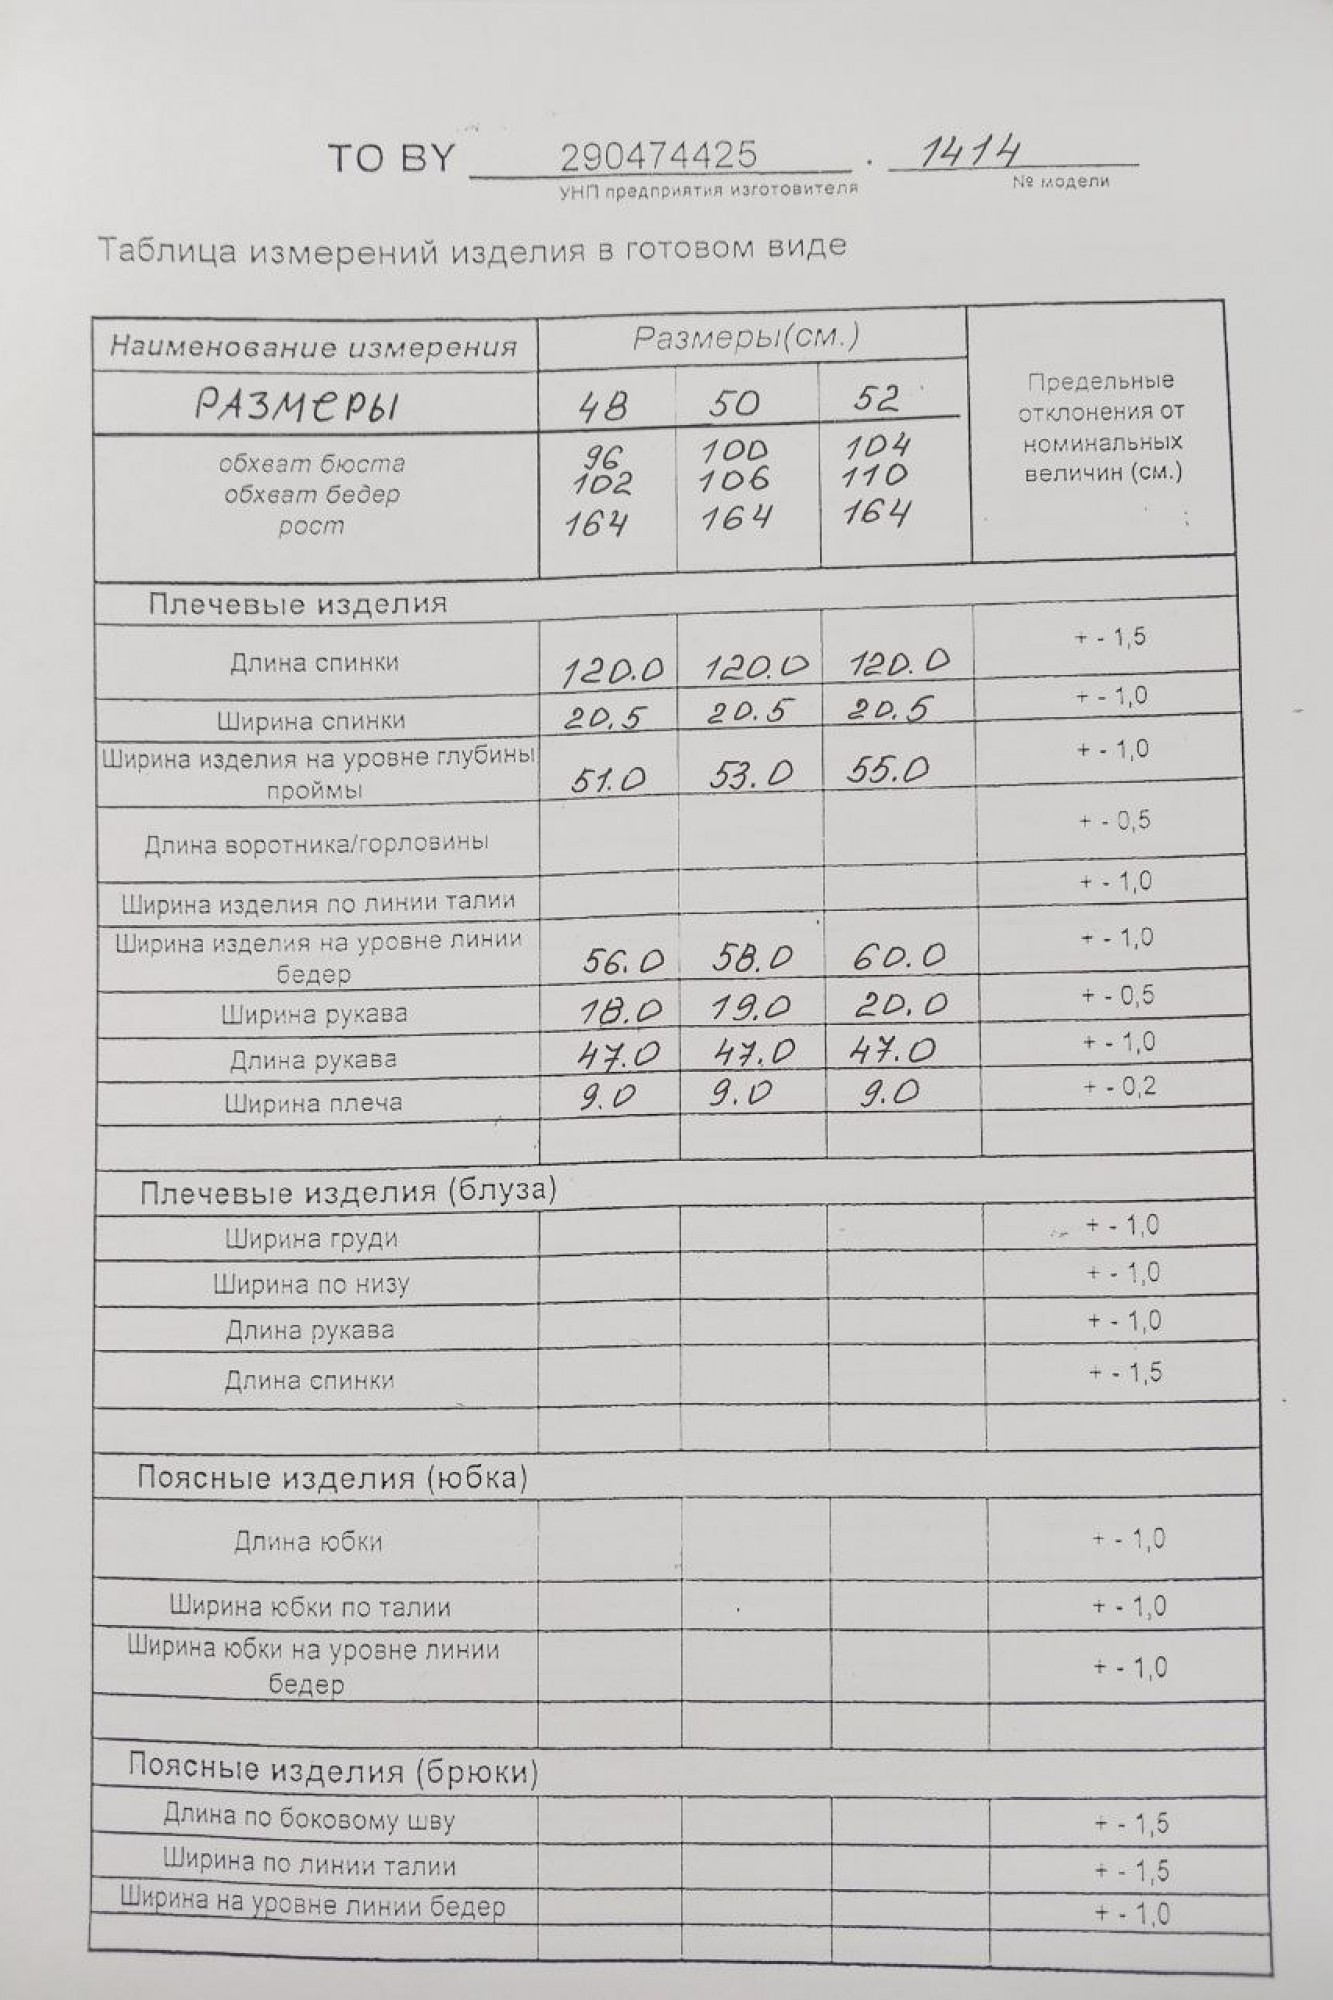 ТО BY 290474425 . 1414
УНП предприятия изготовителя № модели
Таблица измерений изделия в готовом виде
Наименование измерения Размеры(см.) Предельные отклонения от номинальных величин (см.)
РАЗМЕРЫ 48 50 52
обхват бюста 96 100 104
обхват бедер 102 106 110
рост 164 164 164
Плечевые изделия
Длина спинки 120.0 120.0 120.0 + - 1,5
Ширина спинки 20.5 20.5 20.5 + - 1,0
Ширина изделия на уровне глубины
проймы 51.0 53.0 55.0 + - 1,0
Длина воротника/горловины + - 0,5
Ширина изделия по линии талии + - 1,0
Ширина изделия на уровне линии
бедер 56.0 58.0 60.0 + - 1,0
Ширина рукава 18.0 19.0 20.0 + - 0,5
Длина рукава 47.0 47.0 47.0 + - 1,0
Ширина плеча 9.0 9.0 9.0 + - 0,2
Плечевые изделия (блуза)
Ширина груди + - 1,0
Ширина по низу + - 1,0
Длина рукава + - 1,0
Длина спинки + - 1,5
Поясные изделия (юбка)
Длина юбки + - 1,0
Ширина юбки по талии + - 1,0
Ширина юбки на уровне линии
бедер + - 1,0
Поясные изделия (брюки)
Длина по боковому шву + - 1,5
Ширина по линии талии + - 1,5
Ширина на уровне линии бедер + - 1,0